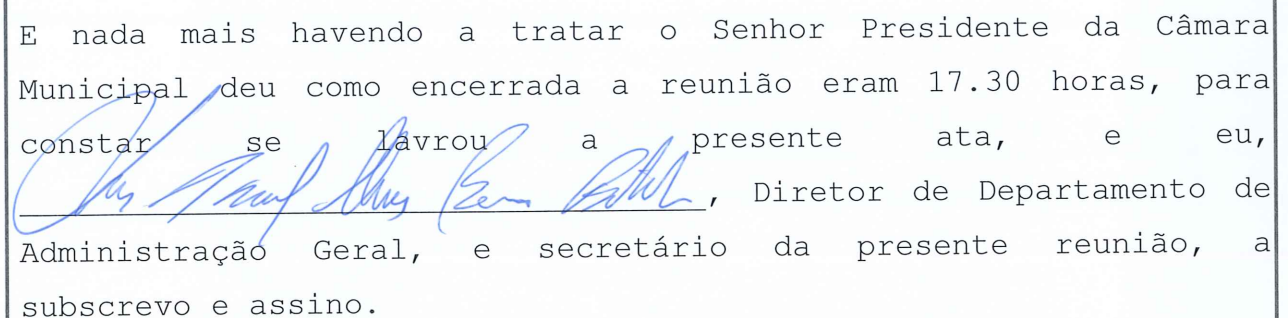 E nada mais havendo a tratar o Senhor Presidente da Câmara
Municipal deu como encerrada a reunião eram 17.30 horas, para
constar se lavrou a presente ata, e eu,
, Diretor de Departamento de
Administração Geral, e secretário da presente reunião, a
subscrevo e assino.